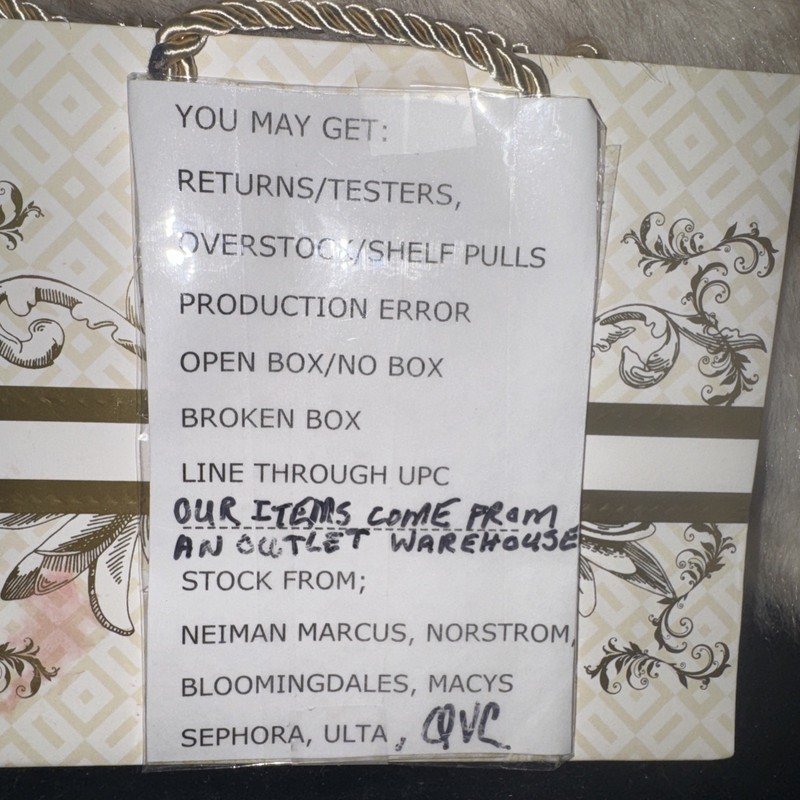 YOU MAY GET:
RETURNS/TESTERS,
OVERSTOCK/SHELF PULLS
PRODUCTION ERROR
OPEN BOX/NO BOX
BROKEN BOX
LINE THROUGH UPC
OUR ITEMS COME FROM
AN OUTLET WAREHOUSE
STOCK FROM;
NEIMAN MARCUS, NORSTROM,
BLOOMINGDALES, MACYS
SEPHORA, ULTA, QVC